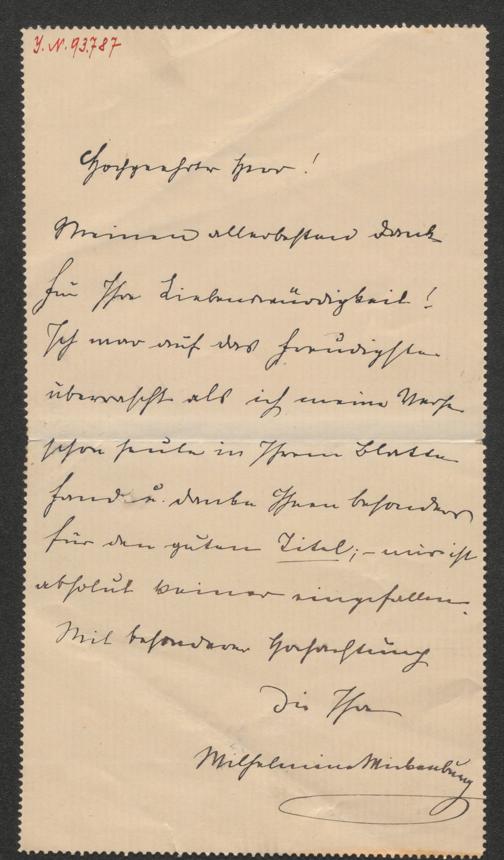 J. N. 93.787
Hochgeehrter Herr!
Meinen allerbesten Dank
für Ihre Liebenswürdigkeit!
Ich war auf das freudigste
überrascht als ich meine Verse
schon heute in Ihrem Blatte
fand u. danke Ihnen besonders
für den guten Titel; – mir ist
absolut keiner eingefallen.
Mit besonderer Hochachtung
die Ihre
Wilhelmine Wickenburg